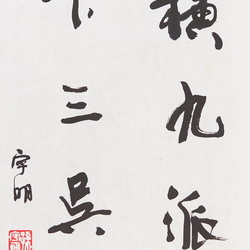 横九派
下三吴
宇明